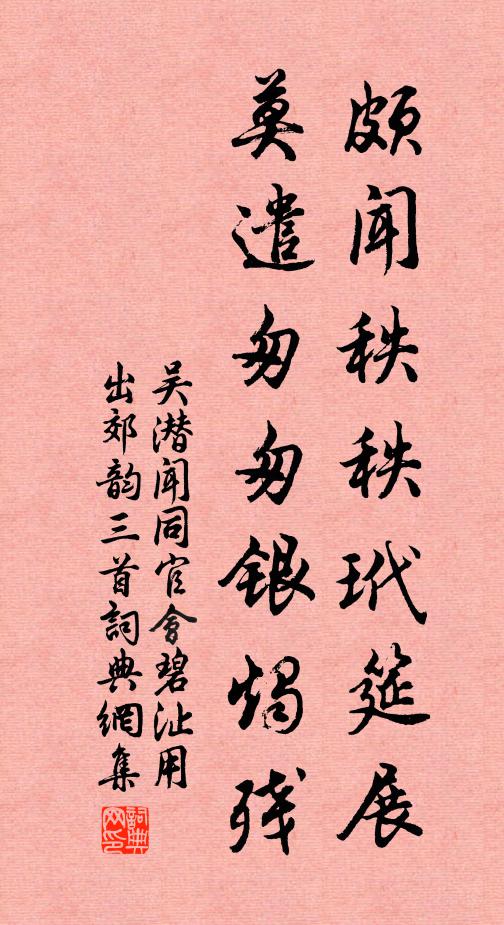 颇闻秩秩玳筵展
莫遣匆匆银烛残
吴潜闻同官会碧沚用
出郊韵三首詞典網集
詞典
网印